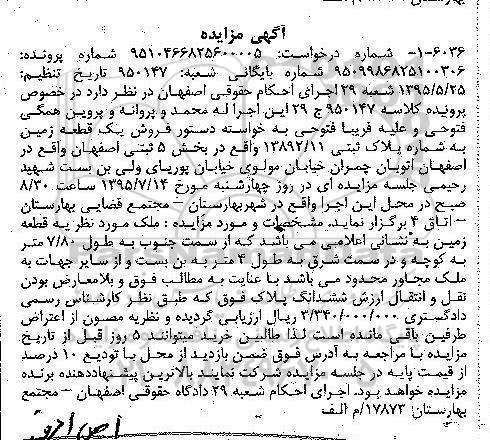 آگهی مزایده
۱-۶۰۳۶- شماره درخواست: ۹۵۱۰۴۶۶۸۲۵۶۰۰۰۰۵ شماره پرونده:
۹۵۰۹۹۸۶۸۲۵۱۰۰۳۰۶ شماره بایگانی شعبه: ۹۵۰۱۴۷ تاریخ تنظیم:
۱۳۹۵/۵/۲۵ شعبه ۲۹ اجرای احکام حقوقی اصفهان در نظر دارد در خصوص
پرونده کلاسه ۹۵۰۱۴۷ ج ۲۹ این اجرا له محمد و پروانه و پروین همگی
فتوحی و علیه فریبا فتوحی به خواسته دستور فروش یک قطعه زمین
به شماره پلاک ثبتی ۱۳۸۹۲/۱۱ واقع در بخش ۵ ثبتی اصفهان واقع در
اصفهان اتوبان چمران خیابان مولوی خیابان پوریای ولی بن بست شهید
رحیمی جلسه مزایده ای در روز چهارشنبه مورخ ۱۳۹۵/۷/۱۴ ساعت ۸/۳۰
صبح در محل این اجرا واقع در شهربهارستان – مجتمع قضایی بهارستان
– اتاق ۴ برگزار نماید. مشخصات و مورد مزایده : ملک مورد نظر یه قطعه
زمین به نشانی اعلامی می باشد که از سمت جنوب به طول ۷/۸۰ متر
به کوچه و در سمت شرق به طول ۴ متر به بن بست و از سایر جهات به
ملک مجاور محدود می باشد با عنایت به مطالب فوق و بلامعارض بودن
نقل و انتقال ارزش ششدانگ پلاک فوق که طبق نظر کارشناس رسمی
دادگستری ۳/۳۴۰/۰۰۰/۰۰۰ ریال ارزیابی گردیده و نظریه مصون از اعتراض
طرفین باقی مانده است لذا طالبین خرید میتوانند ۵ روز قبل از تاریخ
مزایده با مراجعه به آدرس فوق ضمن بازدید از محل با تودیع ۱۰ درصد
از قیمت پایه در جلسه مزایده شرکت نمایند بالاترین پیشنهاددهنده برنده
مزایده خواهد بود. اجرای احکام شعبه ۲۹ دادگاه حقوقی اصفهان – مجتمع
بهارستان: ۱۷۸۷۳/م الف